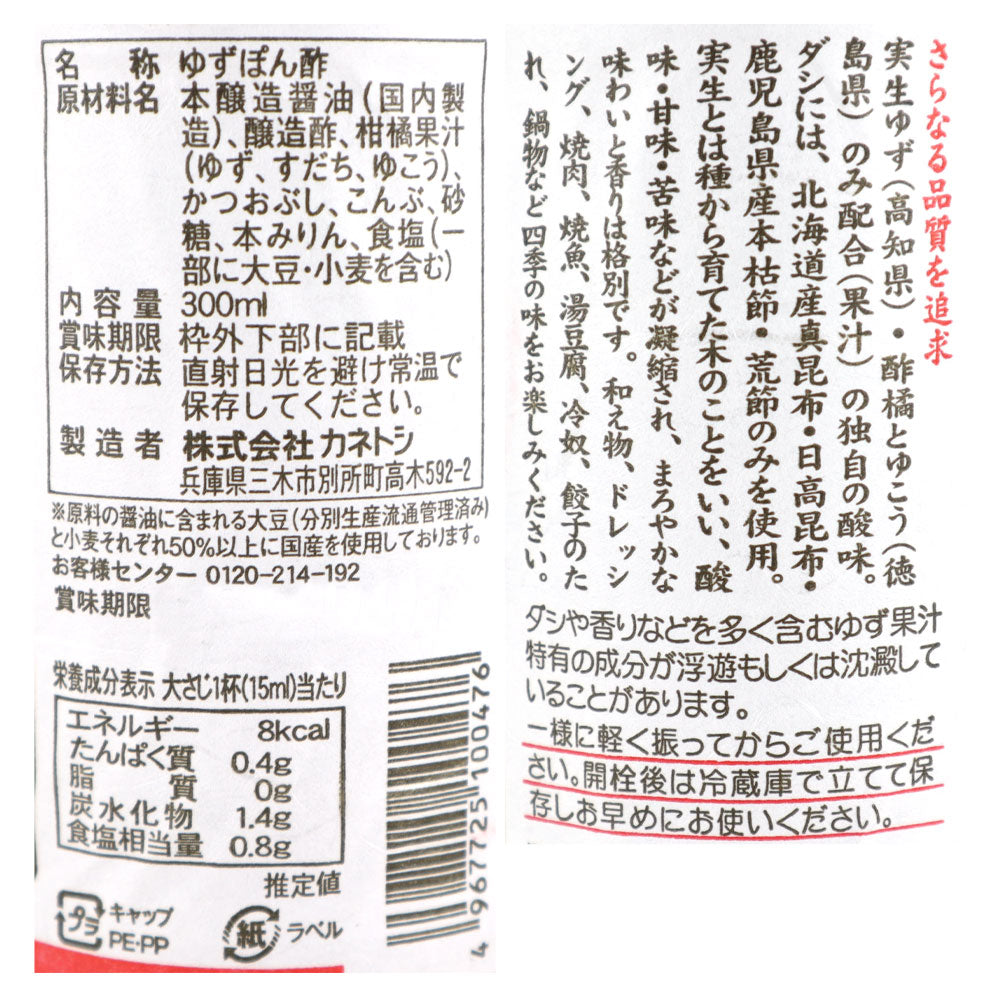 名称 ゆずぽん酢
原材料名 本醸造醤油(国内製
造)、醸造酢、柑橘果汁
(ゆず、すだち、ゆこう)、
かつおぶし、こんぶ、砂
糖、本みりん、食塩(一
部に大豆・小麦を含む)
内容量 300ml
賞味期限 枠外下部に記載
保存方法 直射日光を避け常温で
保存してください。
製造者 株式会社 カネトシ
兵庫県三木市別所町高木592-2
※原料の醤油に含まれる大豆(分別生産流通管理済み)
と小麦それぞれ50%以上に国産を使用しております。
お客様センター 0120-214-192
賞味期限
栄養成分表示 大さじ1杯(15ml)当たり
エネルギー 8kcal
たんぱく質 0.4g
脂質 0g
炭水化物 1.4g
食塩相当量 0.8g
推定値
プラ キャップ
PE・PP
紙 ラベル
4967725100476
さらなる品質を追求
実生ゆず(高知県)・酢橘とゆこう(徳
島県)のみ配合(果汁)の独自の酸味。
ダシには、北海道産真昆布・日高昆布・
鹿児島県産本枯節・荒節のみを使用。
実生とは種から育てた木のことをいい、酸
味・甘味・苦味などが凝縮され、まろやかな
味わいと香りは格別です。和え物、ドレッシ
ング、焼肉、焼魚、湯豆腐、冷奴、餃子のた
れ、鍋物など四季の味をお楽しみください。
ダシや香りなどを多く含むゆず果汁
特有の成分が浮遊もしくは沈澱して
いることがあります。
一様に軽く振ってからご使用くだ
さい。開栓後は冷蔵庫で立てて保
存しお早めにお使いください。